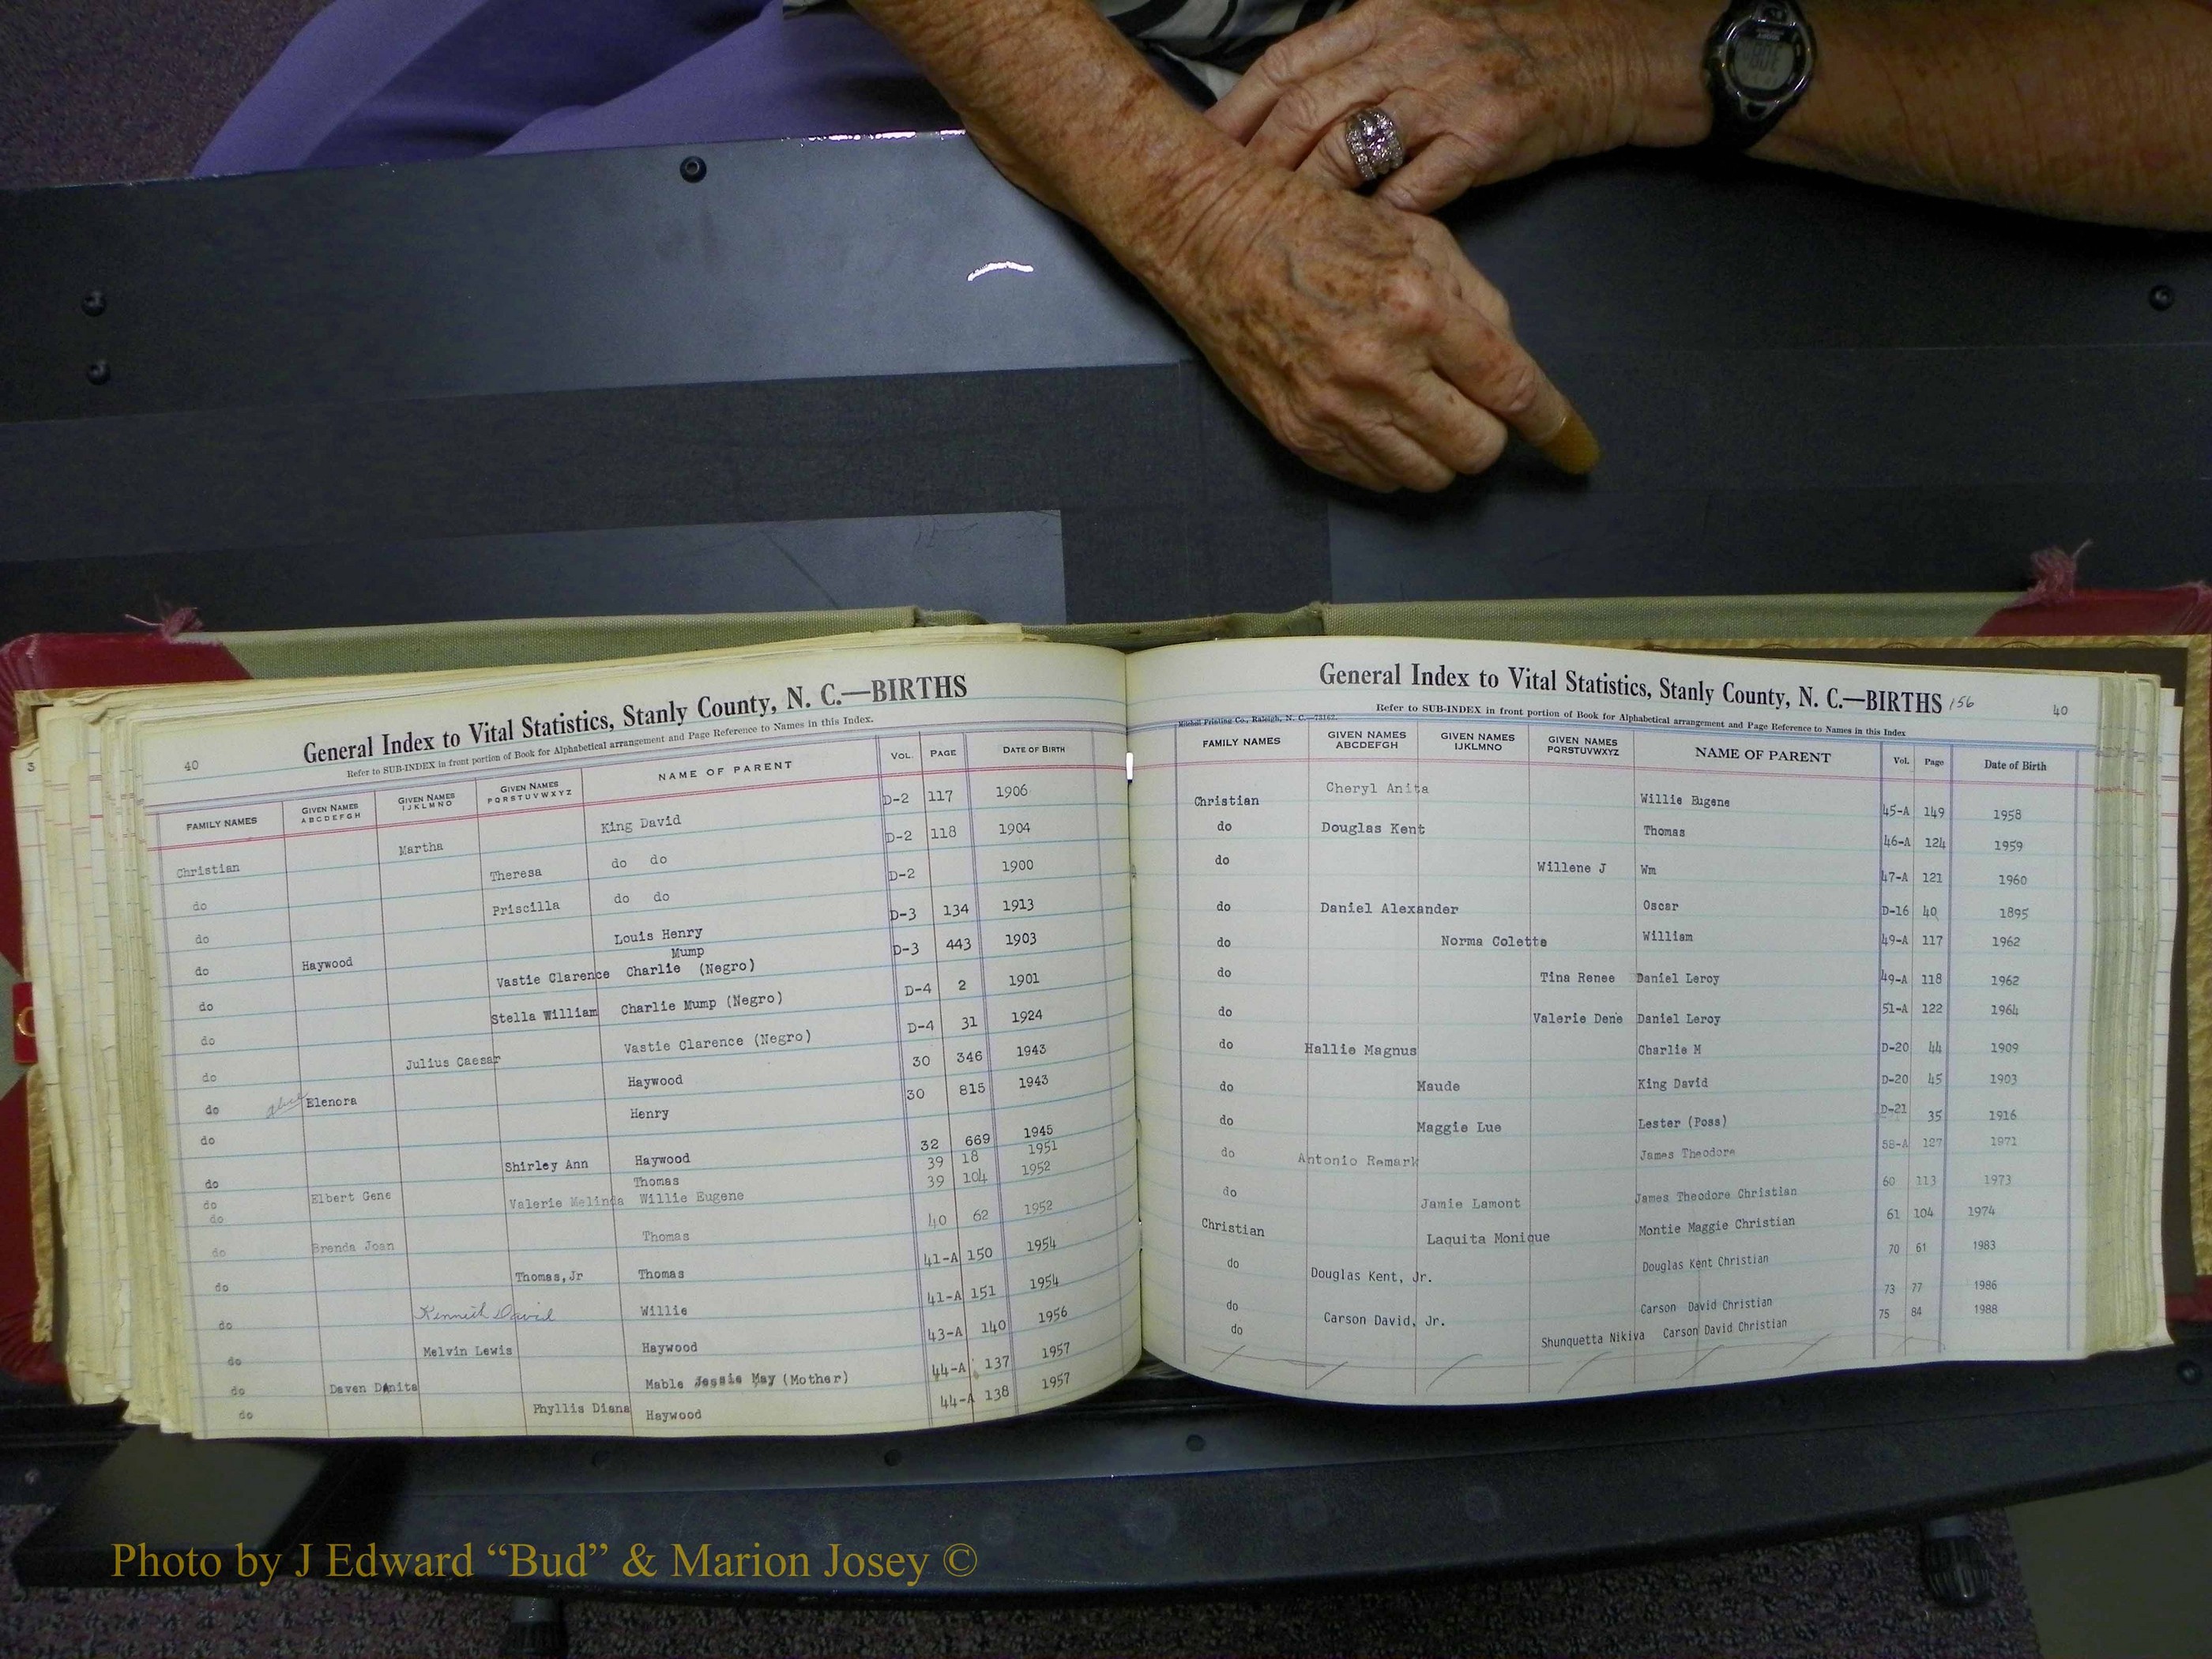 40
General Index to Vital Statistics, Stanly County, N. C.—BIRTHS
Refer to SUB-INDEX in front portion of Book for Alphabetical arrangement and Page Reference to Names in this Index.
FAMILY NAMES GIVEN NAMES ABCDEFGH GIVEN NAMES IJKLMNO GIVEN NAMES PQRSTUVWXYZ NAME OF PARENT VOL. PAGE DATE OF BIRTH
Christian Martha King David D-2 117 1906
do Theresa do do D-2 118 1904
do Priscilla do do D-2 1900
do Haywood Louis Henry D-3 134 1913
Mump
do Vastie Clarence Charlie (Negro) D-3 443 1903
do Stella William Charlie Mump (Negro) D-4 2 1901
do Julius Caesar Vastie Clarence (Negro) D-4 31 1924
do Elenora Haywood 30 346 1943
do Henry 30 815 1943
do Shirley Ann Haywood 32 669 1945
do Elbert Gene Thomas 39 18 1951
do Valerie Melinda Willie Eugene 39 104 1952
do Brenda Joan Thomas 40 62 1952
do Thomas, Jr Thomas 41-A 150 1954
do Kenneth David Willie 41-A 151 1954
do Melvin Lewis Haywood 43-A 140 1956
do Daven Danita Mable Jessie May (Mother) 44-A 137 1957
do Phyllis Diana Haywood 44-A 138 1957
General Index to Vital Statistics, Stanly County, N. C.—BIRTHS 156 40
Refer to SUB-INDEX in front portion of Book for Alphabetical arrangement and Page Reference to Names in this Index
Mitchell Printing Co., Raleigh, N. C.—73162.
FAMILY NAMES GIVEN NAMES ABCDEFGH GIVEN NAMES IJKLMNO GIVEN NAMES PQRSTUVWXYZ NAME OF PARENT Vol. Page Date of Birth
Christian Cheryl Anita Willie Eugene 45-A 149 1958
do Douglas Kent Thomas 46-A 124 1959
do Willene J Wm 47-A 121 1960
do Daniel Alexander Oscar D-16 40 1895
do Norma Colette William 49-A 117 1962
do Tina Renee Daniel Leroy 49-A 118 1962
do Valerie Dene Daniel Leroy 51-A 122 1964
do Hallie Magnus Charlie M D-20 44 1909
do Maude King David D-20 45 1903
do Maggie Lue Lester (Poss) D-21 35 1916
do Antonio Remark James Theodore 58-A 127 1971
do Jamie Lamont James Theodore Christian 60 113 1973
Christian Laquita Monique Montie Maggie Christian 61 104 1974
do Douglas Kent, Jr. Douglas Kent Christian 70 61 1983
do Carson David, Jr. Carson David Christian 73 77 1986
do Shunquetta Nikiva Carson David Christian 75 84 1988
Photo by J Edward “Bud” & Marion Josey ©